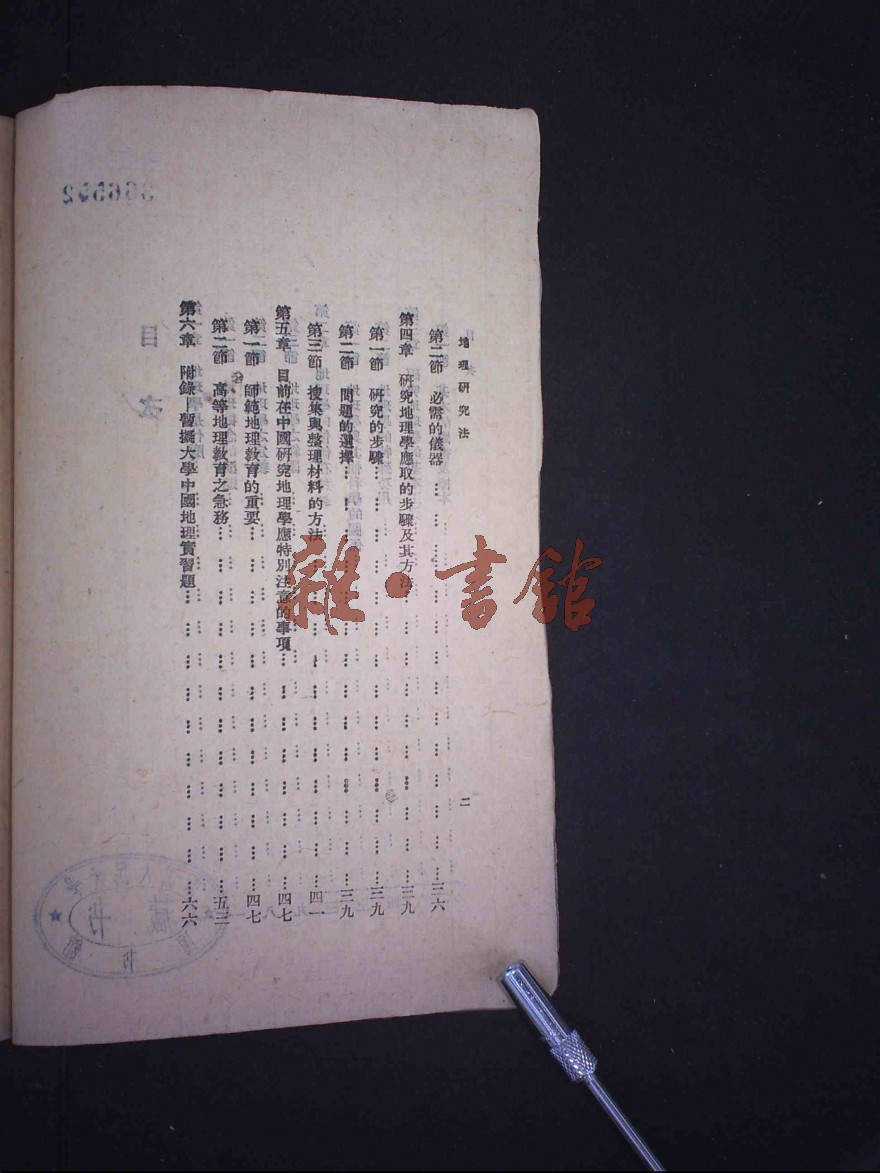 地理研究法
二
第二節 必需的儀器……三六
第四章 研究地理學應取的步驟及其方法……三九
第一節 研究的步驟……三九
第二節 問題的選擇……三九
第三節 搜集與整理材料的方法……四一
第五章 目前在中國研究地理學應特別注意的事項……四七
第一節 師範地理教育的重要……四七
第二節 高等地理教育之急務……五三
第六章 附錄 暫擬大學中國地理實習題……六六
目次
366592
雜·書館
藏书